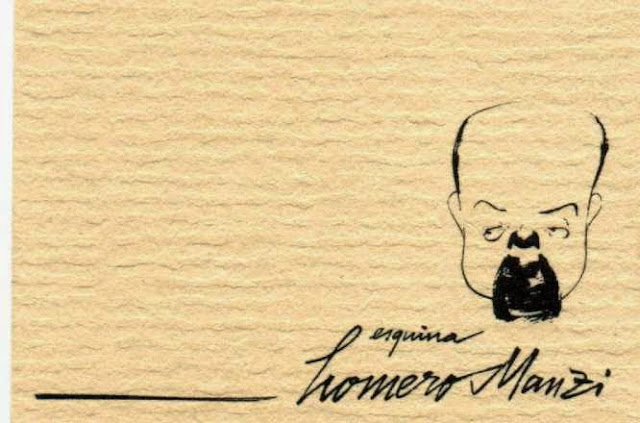 esquina
Homero Manzi